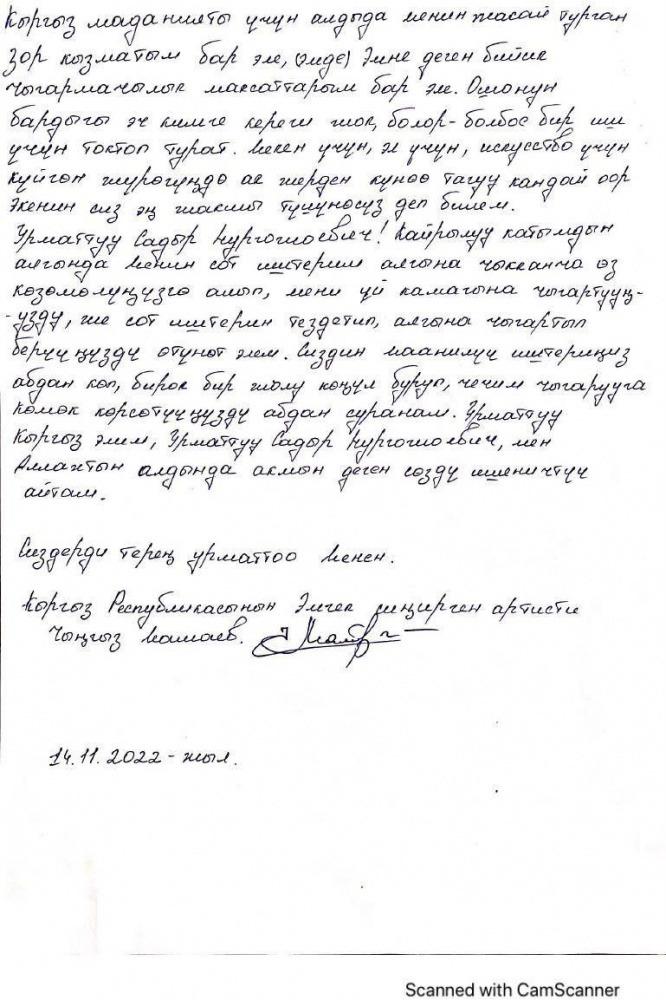 Кыргыз маданияты үчүн алдыда менин жасай турган
зор кызматым бар эле, (элде) Эмне деген бийик
чыгармачылык максаттарым бар эле. Ошонун
бардыгы эч кимге кереги жок, болор-болбос бир иш
үчүн токтоп турат. Мекен үчүн, эл үчүн, искусство үчүн
күйгөн жүрөгүңдө ак жерден күнөө тагуу кандай оор
экенин сиз эң жакшы түшүнөсүз деп билем.
Урматтуу Садыр Нургожоевич! Кайрылуу катымдын
алгында менин сот иштерим алгына чыкканча өз
көзөмөлүңүзгө алып, мени үй камагына чыгартууң-
-узду, же сот иштерин тездетип, алгына чыгартып
берүүңүздү өтүнөт элем. Сиздин маанилүү иштериңиз
абдан көп, бирок бир жолу көңүл буруп, чечим чыгарууга
көмөк көрсөтүүңүздү абдан суранам. Урматтуу
Кыргыз элим, Урматтуу Садыр Нургожоевич, мен
алдында акмын деген сөздү ишеничтүү
айтам.
Сиздерди терең урматтоо менен.
Кыргыз Республикасынын Эмгек сиңирген артисти
Чыңгыз Мамаев.
14.11.2022-жыл.
Scanned with CamScanner